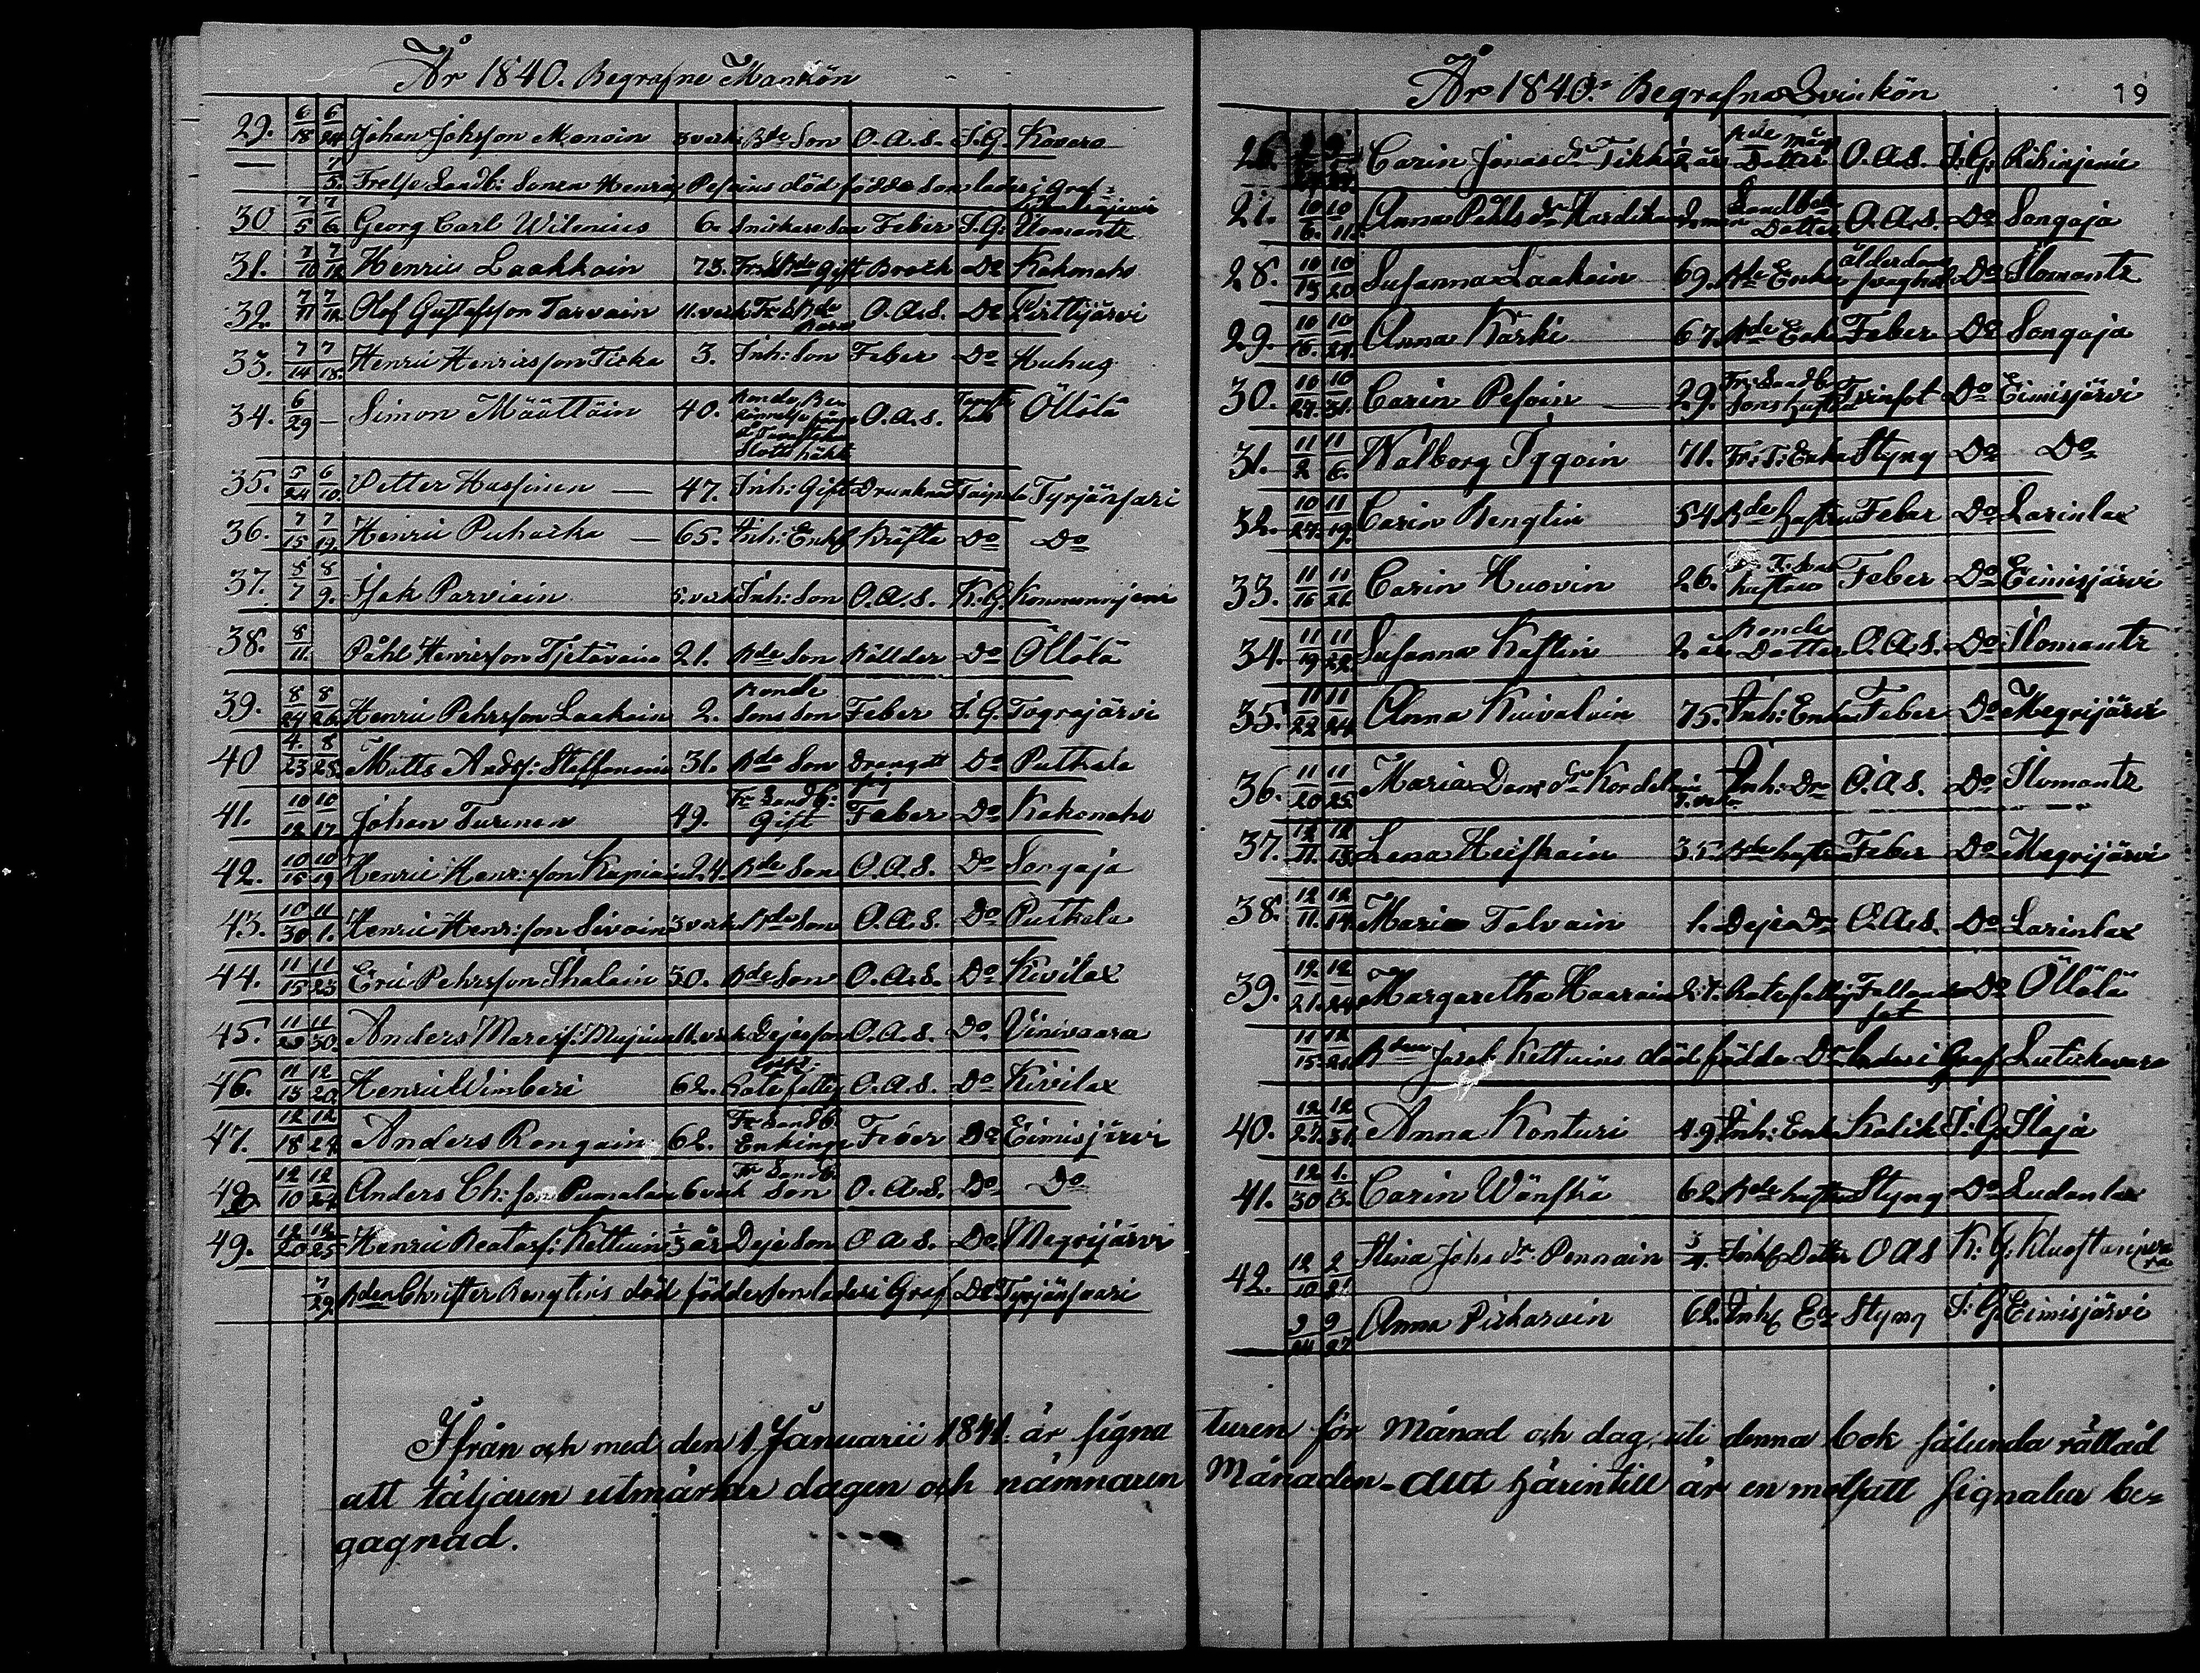 År 1840. Begrafne Mankön
29. 6/18 6/24 Johan Johsson Monoin 3 veck Bde Son O.A.S. S.G. Kovero
7/5. Frelse Landb: Sonen Henric Pesoius död födde Son lades i Graf
30 7/5 7/6 Georg Carl Wilenius 6. Snickare Son Feber S.G. Ilomants
31. 7/10 7/12 Henric Laakkoin 73. Gift Bråck Do Kokonaho
32. 7/11 7/12. Olof Gustafsson Tarvain 11. veck O.A.S. Do Pirttijärvi
33. 7/14 7/18. Henric Henricsson Tiska 3. Inh: Son Feber Do Huhus
34. 6/29 — Simon Määttäin 40. O.A.S. Öllölä
35. 5/24 6/10. Petter Hassinen — 47. Inh: Gift Drunknad Taipale Tyrjänsari
36. 7/15 7/19. Henric Puhacka — 65. Inh: Enkl Kräfta Do Do
37. 8/7 8/9. Isak Parviain 5. veck Inh: Son O.A.S. K.G.
38. 8/11. Påhl Henricsson Tjetäväin 21. Bde Son Do Öllölä
39. 8/24 8/26 Henric Pehrsson Laakoin 2. Bonde Sons Son Feber S.G. Tograjärvi
40 4./23 8/28. Matts Anders: Steffonain 31. Bde Son Do Putkela
41. 10/12 10/17. Johan Turunen 49. Fr Landb: Gift Feber Do Kokonaho
42. 10/15 10/19 Henric Henr:sson Kapiain 24. Bde Son O.A.S. Do Songaja
43. 10/30 11/1. Henric Henr:sson Sivoin 3 veck Bde Son O.A.S. Do Putkela
44. 11/15 11/23 Eric Pehrsson Ihalain 50. Bde Son O.A.S. Do Kivilax
45. 11/29 11/30. Anders Dejesson O.A.S. Do Vinivaara
46. 11/13 12/20. Henric Wimberi 62. Rotefattig O.A.S. Do Kivilax
47. 12/18 12/24. Anders Rongain 62. Fr Landb. Enkling Feber Do Eimisjärvi
48 12/10 12/24 Anders Ch: son Pumalain 6 veck Fr Landb. Son O.A.S. Do Do
49. 12/20 12/25 Henric Beatasf: Kettuin 1/3 år Deje Son O.A.S. Do Megrijärvi
7/29. Bden Christer Bengtins död födde son lades i Graf Do Tyrjänsaari
År 1840. Begrafne Qvinkön 19
26. Carin Jonasdr Tikka 1/2 år Dotter O.A.S. S.G.
27. 10/6. 10/11. Anna Påhlsdr Hardikain Landbde Dotter O.A.S. Do Songaja
28. 10/15 10/20 Susanna Laakoin 69. Bde Enka ålderdoms svaghet Do Ilomants
29. 10/18. 10/24. Anna Kärki 67. Bde Enka Feber Do Songaja
30. 10/27. 10/31. Carin Pesoin — 29. Fr: Landb: Sons hustru Do Eimisjärvi
31. 11/2 11/6. Walborg Iggoin 71. Fr: T: Enka Styng Do Do
32. 10/27. 11/19. Carin Bengtin 54. Bde hustru Feber Do Larinlax
33. 11/16 11/21 Carin Huovin 26. hustru Feber Do Eimisjärvi
34. 11/19 11/22 Susanna Kastin 2 år Bonde Dotter O.A.S. Do Ilomants
35. 11/22 11/24 Anna Kuivalain 75. Inh: Enka Feber Do Megrijärvi
36. 11/20 11/25 Maria Dans dr Kordelain Inh: Dr O.A.S. Do Ilomants
37. 12/11. 12/13 Lena Heiskain 35. Bde hustru Feber Do Megrijärvi
38. 12/11. 12/14 Maria Tolvain 1. Deje Dr O.A.S. Do Larinlax
39. 12/21. 12/24 Margaretha Haarain 27. Rotefattig Fallandesot Do Öllölä
11/15. 12/21. Bden Josef Kettuins död födda Dr lades i Graf Lutiskavara
40. 12/27. 12/31. Anna Konturi 49 Inh: Enka Kolik S:G. Iloja
41. 12/30 1./3. Carin Wänskä 62. Bde hustru Styng Do Ludonlax
42. 12/10 2/21. Stina Johs dr Pennain 3/4. Inhs Dotter O A S K. G.
9/24 9/27 Anna Pirhavain 62. Inhs Ea Styng S:G. Eimisjärvi
Ifrån och med den 1. Januarii 1841. är signaturen för Månad och dag, uti denna bok sålunda rättad
att täljaren utmärker dagen och nämnaren Månaden. Allt härintill är en motsatt signatur be=
gagnad.